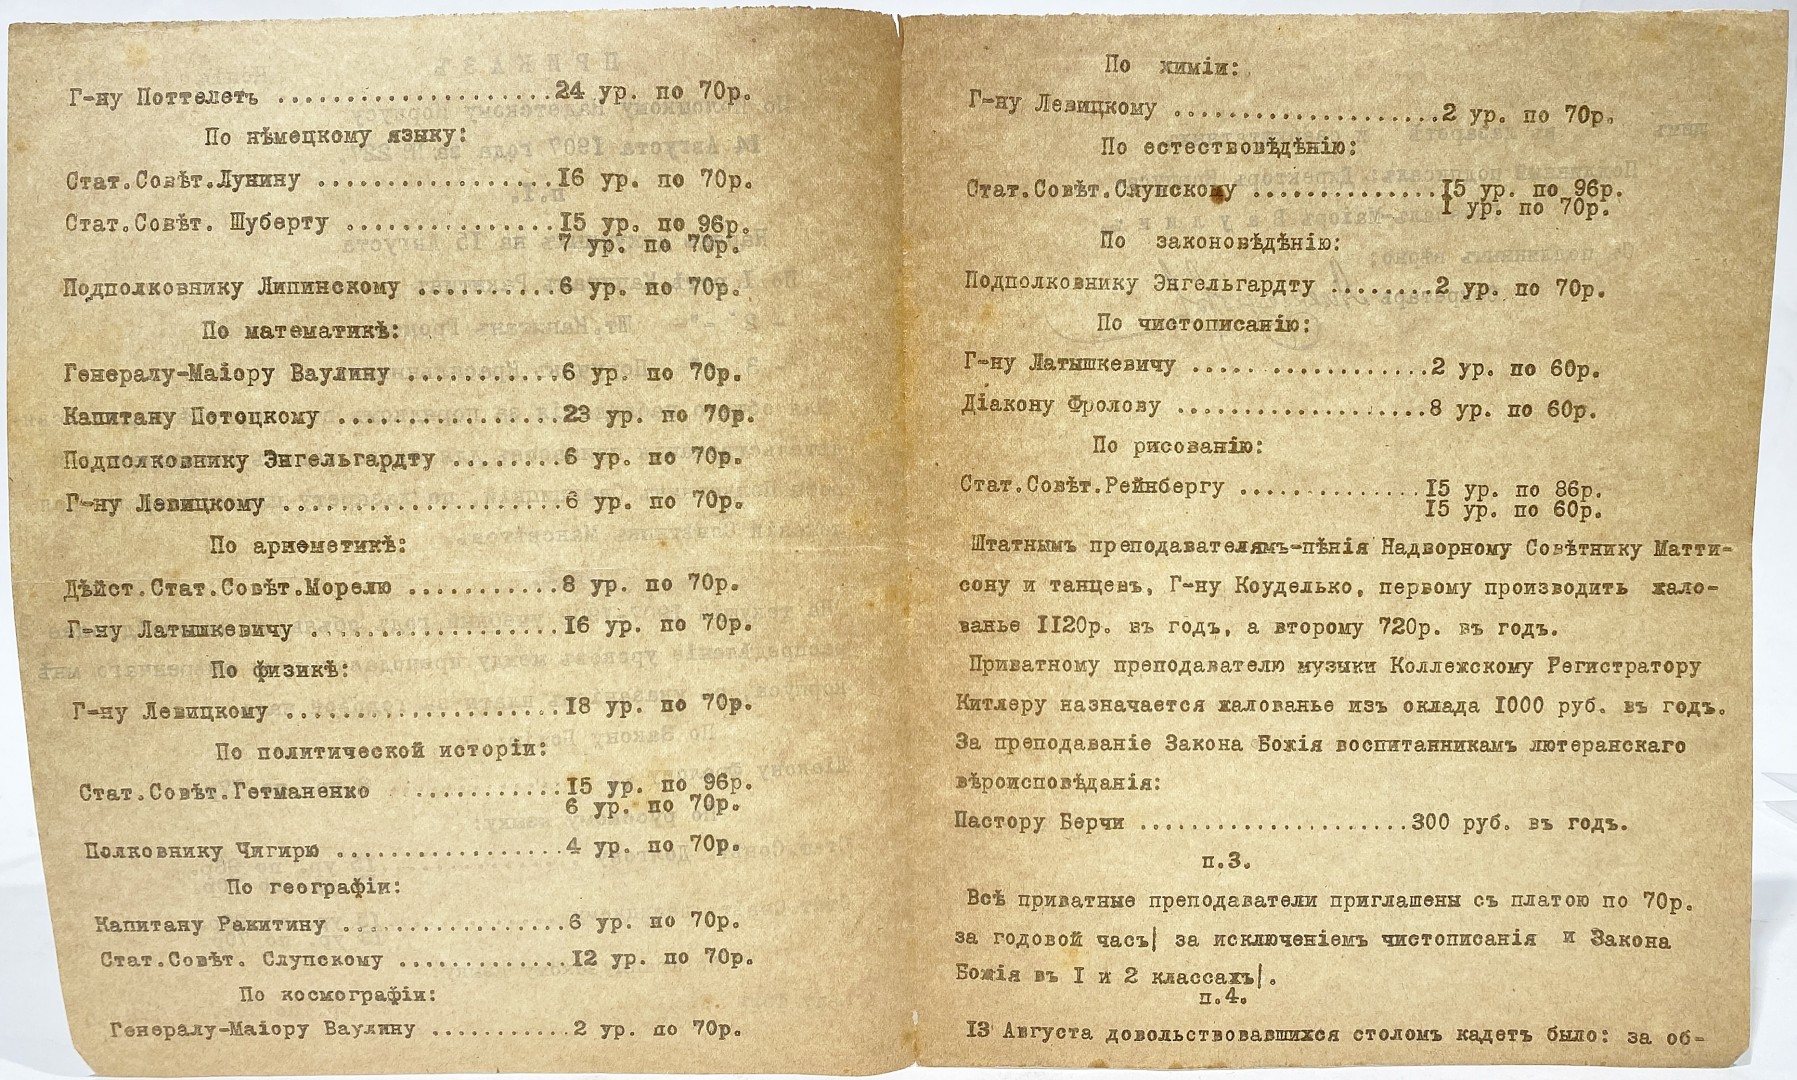 Г-ну Поттелетъ ....................24 ур. по 70р.
По нѣмецкому языку:
Стат.Совѣт.Лунину .................16 ур. по 70р.
Стат.Совѣт. Шуберту ...............15 ур. по 96р.
7 ур. по 70р.
Подполковнику Липинскому ..........6 ур. по 70р.
По математикѣ:
Генералу-Маіору Ваулину ...........6 ур. по 70р.
Капитану Потоцкому ................23 ур. по 70р.
Подполковнику Энгельгардту ........6 ур. по 70р.
Г-ну Левицкому ....................6 ур. по 70р.
По ариѳметикѣ:
Дѣйст.Стат.Совѣт.Морелю ...........8 ур. по 70р.
Г-ну Латышкевичу ..................16 ур. по 70р.
По физикѣ:
Г-ну Левицкому ....................18 ур. по 70р.
По политической исторіи:
Стат.Совѣт.Гетманенко ...........15 ур. по 96р.
6 ур. по 70р.
Полковнику Чигирю .................4 ур. по 70р.
По географіи:
Капитану Ракитину .................6 ур. по 70р.
Стат.Совѣт. Слупскому .............12 ур. по 70р.
По космографіи:
Генералу-Маіору Ваулину ...........2 ур. по 70р.
По химіи:
Г-ну Левицкому ....................2 ур. по 70р.
По естествовѣдѣнію:
Стат.Совѣт.Слупскому ..............15 ур. по 96р.
1 ур. по 70р.
По законовѣдѣнію:
Подполковнику Энгельгардту ........2 ур. по 70р.
По чистописанію:
Г-ну Латышкевичу ..................2 ур. по 60р.
Діакону Фролову ...................8 ур. по 60р.
По рисованію:
Стат.Совѣт.Рейнбергу ..............15 ур. по 86р.
15 ур. по 60р.
Штатнымъ преподавателямъ-пѣнія Надворному Совѣтнику Матти-
сону и танцевъ, Г-ну Коуделько, первому производить жало-
ванье 1120р. въ годъ, а второму 720р. въ годъ.
Приватному преподавателю музыки Коллежскому Регистратору
Китлеру назначается жалованье изъ оклада 1000 руб. въ годъ.
За преподаваніе Закона Божія воспитанникамъ лютеранскаго
вѣроисповѣданія:
Пастору Берчи ....................300 руб. въ годъ.
п.3.
Всѣ приватные преподаватели приглашены съ платою по 70р.
за годовой часъ/ за исключеніемъ чистописанія и Закона
Божія въ 1 и 2 классахъ/.
п.4.
13 Августа довольствовавшихся столомъ кадетъ было: за об-